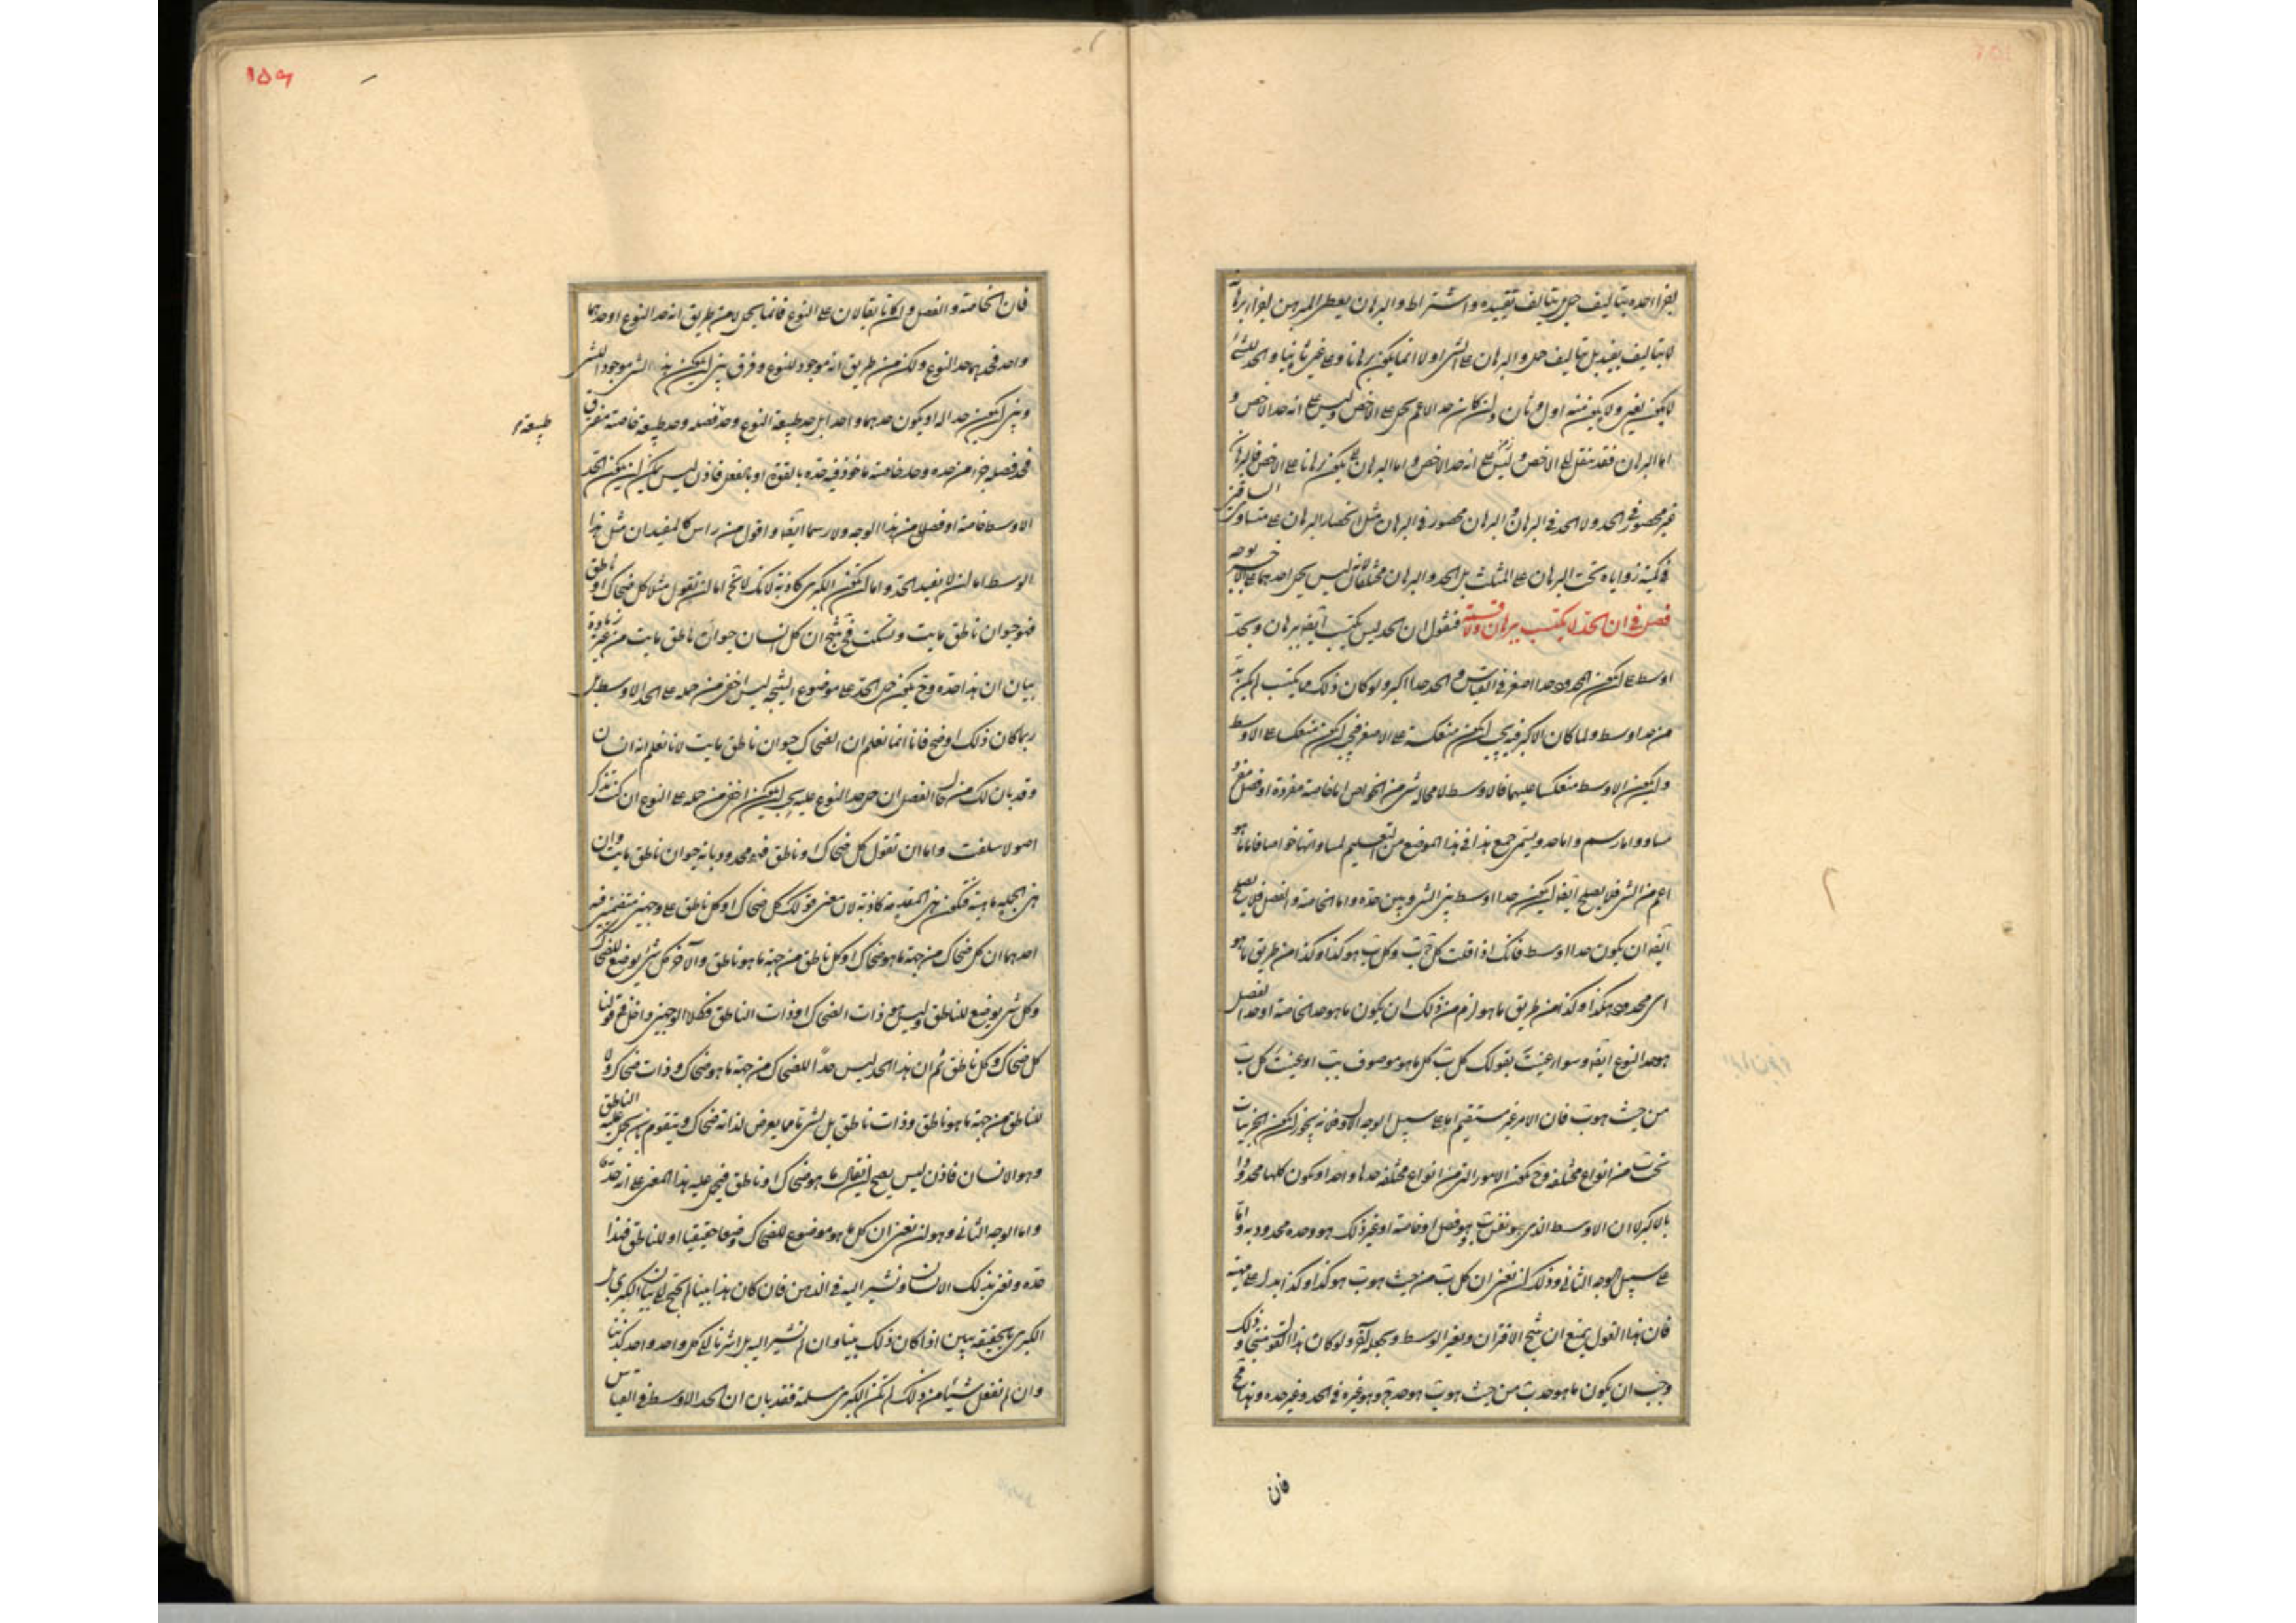 لاجزاء حده بتاليف حمل بل بتاليف تقييد واشتراط والبرهان يعطى المبرهن لاجزاء برهانه
لا بتاليف تقييد بل بتاليف حمل والبرهان على الشى اولا انما يكون برهانا وعلى غيره ثانيا والحد للشئ
لا يكون لغيره ولا يكون منه اول وثان وان كان حد الاعم يحمل على الاخص وليس على انه حد الاخص و
اما البرهان فقد ينقل الى الاخص وليس على انه حد الاخص واما البرهان على يكون برهانا على الاخص فالبرهان
غير محصور فى الحد ولا الحد فى البرهان والبرهان محصور فى البرهان مثل انحصار البرهان على متساوى الساقين
فى كمية زواياه تحت البرهان على المثلث بل الحد والبرهان مختلفان لانه ليس يحمل احدهما على الاخر بوجه
فصل فى ان الحد لا يكتسب ببرهان ولا قسمة فنقول ان الحد ليس يكتسب ايضا ببرهان وبحد
اوسط على ان يكون المحدود حدا اصغر فى القياس والحد حدا اكبر ولو كان ذلك مما يكتسب لم يكن بد
من حد اوسط ولما كان الاكبر فيه يجب ان يكون منعكسا على الاصغر فيجب ان يكون منعكسا على الاوسط
وان يكون الاوسط منعكسا عليهما فالاوسط لا محالة شى من الخواص اما خاصة مفردة او فصل مفرد
مساو واما رسم واما حد ويسمى جميع هذا فى هذا الموضع من التعليم لمساواتها خواصا فاما ما هو
اعم من الشى فلا يصلح ايضا ان يكون حدا اوسط بين الشى وبين حده واما الخاصة والفصل فلا يصلح
ايضا ان يكون حدا اوسط فانك اذا قلت كل ج ب وكل ب هو كذا وكذا من طريق ما هو
اى محدود بكذا وكذا من طريق ما هو لزم من ذلك ان يكون ما هو حد الخاصة او حد الفصل
هو حد النوع ايضا وسواء عنيت بقولك كل ب كل ما هو موصوف بب او عنيت كل ب
من حيث هو ب فان الامر غير مستقيم اما على سبيل الوجه الاول فلانه يجوز ان يكون الجزئيات
تحت ب من انواع مختلفة وح يكون الامور التى من انواع مختلفة حدها واحدا ويكون كلها محدودا
بالاكبر لا ان الاوسط الذى هو نفس ب وهو فصل او خاصة او غير ذلك هو وحده محدود به واما
على سبيل الوجه الثانى وذلك ان نعنى ان كل ب من حيث هو ب هو كذا وكذا يدل على مهيته
فان هذا القول يمنع ان ينتج الاقتران ويغير الوسط ويجعله آخر ولو كان هذا القول منتجا وذلك
وجب ان يكون ما هو حد ب من حيث هو ب هو حد ج وهو غيره فى الحد وغير حده وهذا قبيح
فان
فان الخاصة والفصل وان كانا يقالان على النوع فانما يحمل لا من طريق انه حد النوع او حدهما
واحد فحدهما حد النوع ولكن من طريق انه موجود للنوع وفرق بين ان يكون هذا الشى موجودا للشى
وبين ان يكون حدا له او يكون حدهما واحدا بل حد طبيعة النوع وحد فصله وحد طبيعة خاصته مفترق
طبيعة
فحد فصله جزء من حده وحد خاصته ماخوذ فيه حده بالقوة او بالفعل فاذن ليس يمكن ان يكون الحد
الاوسط خاصة او فصلا من هذا الوجه ولا رسما ايضا واقول من راس كالمفيد ان مثل هذا
الوسط اما ان لا يفيد الحد واما ان يكون الكبرى كاذبة لانك لا تخ اما ان تقول مثلا كل ضحاك او ناطق
فهو حيوان ناطق مايت وتسكت فح ينتج ان كل انسان حيوان ناطق مايت من غير زيادة
بيان ان هذا حده وح يكون حمل الحد على موضوع النتيجة ليس اخفى من حمله على الحد الاوسط بل
ربما كان ذلك اوضح فانا انما نعلم ان الضحاك حيوان ناطق مايت لانا نعلم انه انسان
وقد بان لك من حال الفصل ان حمل حد النوع عليه يجب ان يكون اخفى من حمله على النوع ان كنت تتذكر
اصولا سلفت واما ان تقول كل ضحاك او ناطق فهو محدود بانه حيوان ناطق مايت وان
هذى الجملة ماهيته فتكون هذى المقدمة كاذبة لان معنى قولك كل ضحاك او كل ناطق على وجهين متضمنين فيه
احدهما ان كل ضحاك من جهة ما هو ضحاك او كل ناطق من جهة ما هو ناطق والآخر كل شى يوضع للضحاك
وكل شى يوضع للناطق وليس هو ذات الضحاك او ذات الناطق فكلا الوجهين داخل فى قولنا
كل ضحاك وكل ناطق ثم ان هذا الحد ليس حدا للضحاك من جهة ما هو ضحاك وذات ضحاك ولا
للناطق من جهة ما هو ناطق وذات ناطق بل لشى ما مما يعرض لذاته ضحاك ويتقوم بان يحمل عليه الناطق
وهو الانسان فاذن ليس يصح ان يقال ما هو ضحاك او ناطق فيحمل عليه هذا المعنى على انه حد ما
واما الوجه الثانى وهو ان نعنى ان كل ما هو موضوع للضحاك وضعا حقيقيا او للناطق فهذا
حده ونعنى بذلك الانسان ونشير اليه فى الذهن فان كان هذا بينا لم نحتج الى بيان الكبرى بل
الكبرى بالحقيقة يبين اذا كان ذلك بينا وان لم نشير اليه بل اشرنا الى كل واحد واحد كذبنا
وان لم نفعل شيئا من ذلك لم تكن الكبرى مسلمة فقد بان ان الحد الاوسط فى القياس
١٥٩